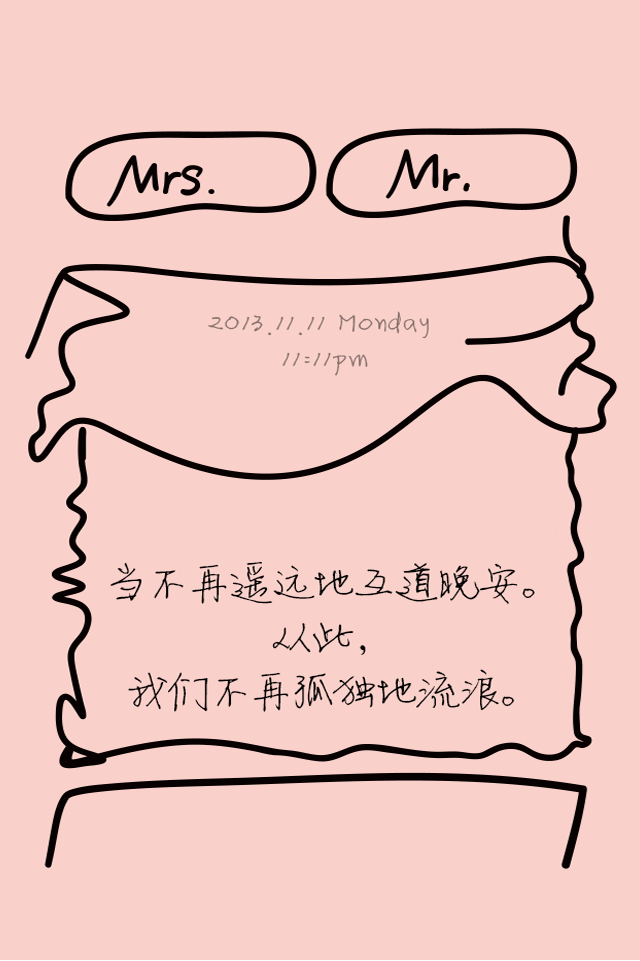 Mrs.
Mr.
2013.11.11 Monday
11:11pm
当不再遥远地互道晚安。
从此，
我们不再孤独地流浪。